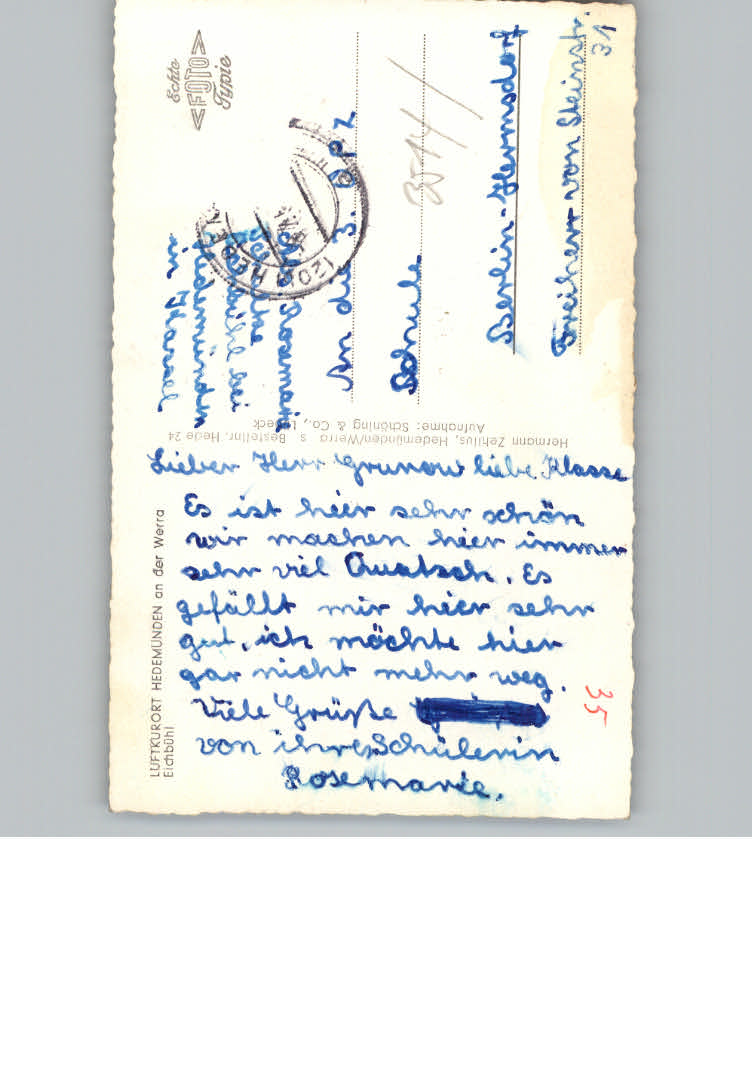 LUFTKURORT HEDEMÜNDEN an der Werra
Eichbühl
Lieber Herr Grunow liebe Klasse
Es ist hier sehr schön
wir machen hier immer
sehr viel Quatsch. Es
gefällt mir hier sehr
gut, ich möchte hier
gar nicht mehr weg.
Viele Grüße
von ihrer Schülerin
Rosemarie.
35
Hermann Zehilus, Hedemünden/Werra Bestellnr. Hede 24
Aufnahme: Schöning & Co., Lübeck
Echte
<FOTO>
Typie
bei
Hedemünden
in Kassel
An die 3. OPZ
Schule
3514/
Berlin-Hermsdorf
Freiherr von Steinstr.
31